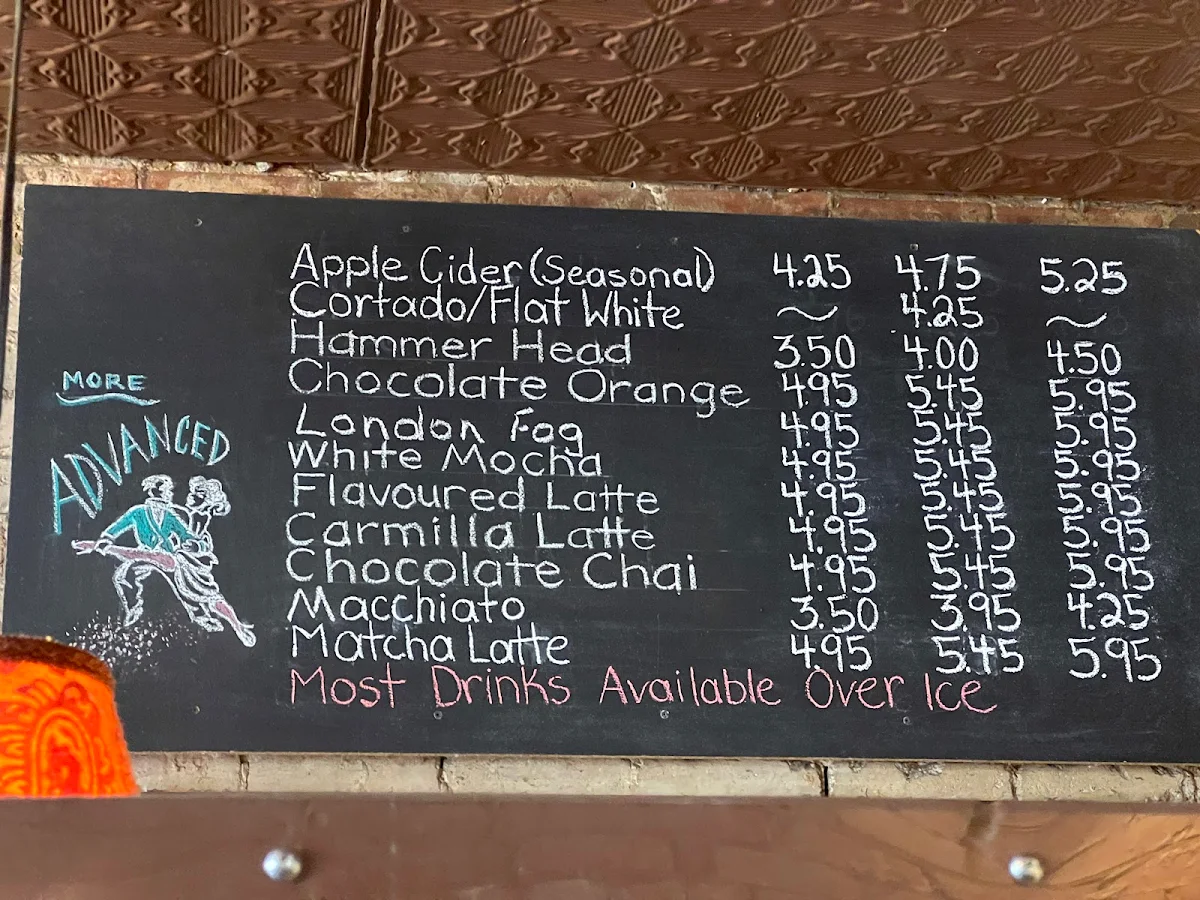 MORE
ADVANCED
Apple Cider (Seasonal) 4.25 4.75 5.25
Cortado/Flat White ~ 4.25 ~
Hammer Head 3.50 4.00 4.50
Chocolate Orange 4.95 5.45 5.95
London Fog 4.95 5.45 5.95
White Mocha 4.95 5.45 5.95
Flavoured Latte 4.95 5.45 5.95
Carmilla Latte 4.95 5.45 5.95
Chocolate Chai 4.95 5.45 5.95
Macchiato 3.50 3.95 4.25
Matcha Latte 4.95 5.45 5.95
Most Drinks Available Over Ice